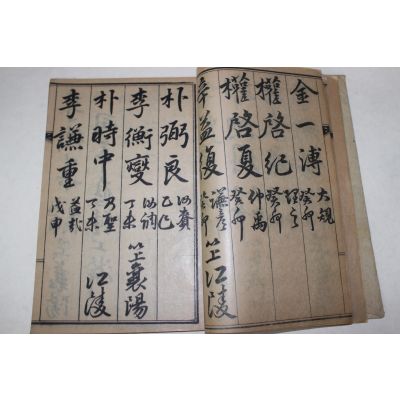 金一溥 大規 癸卯
權啓紀 癸卯
權啓夏 仲禹 癸卯
益復 癸卯 江陵
朴弼良 乙巳
李衡變 丁未 襄陽
朴時中 乃聖 丁未 江陵
李謙重 戊申